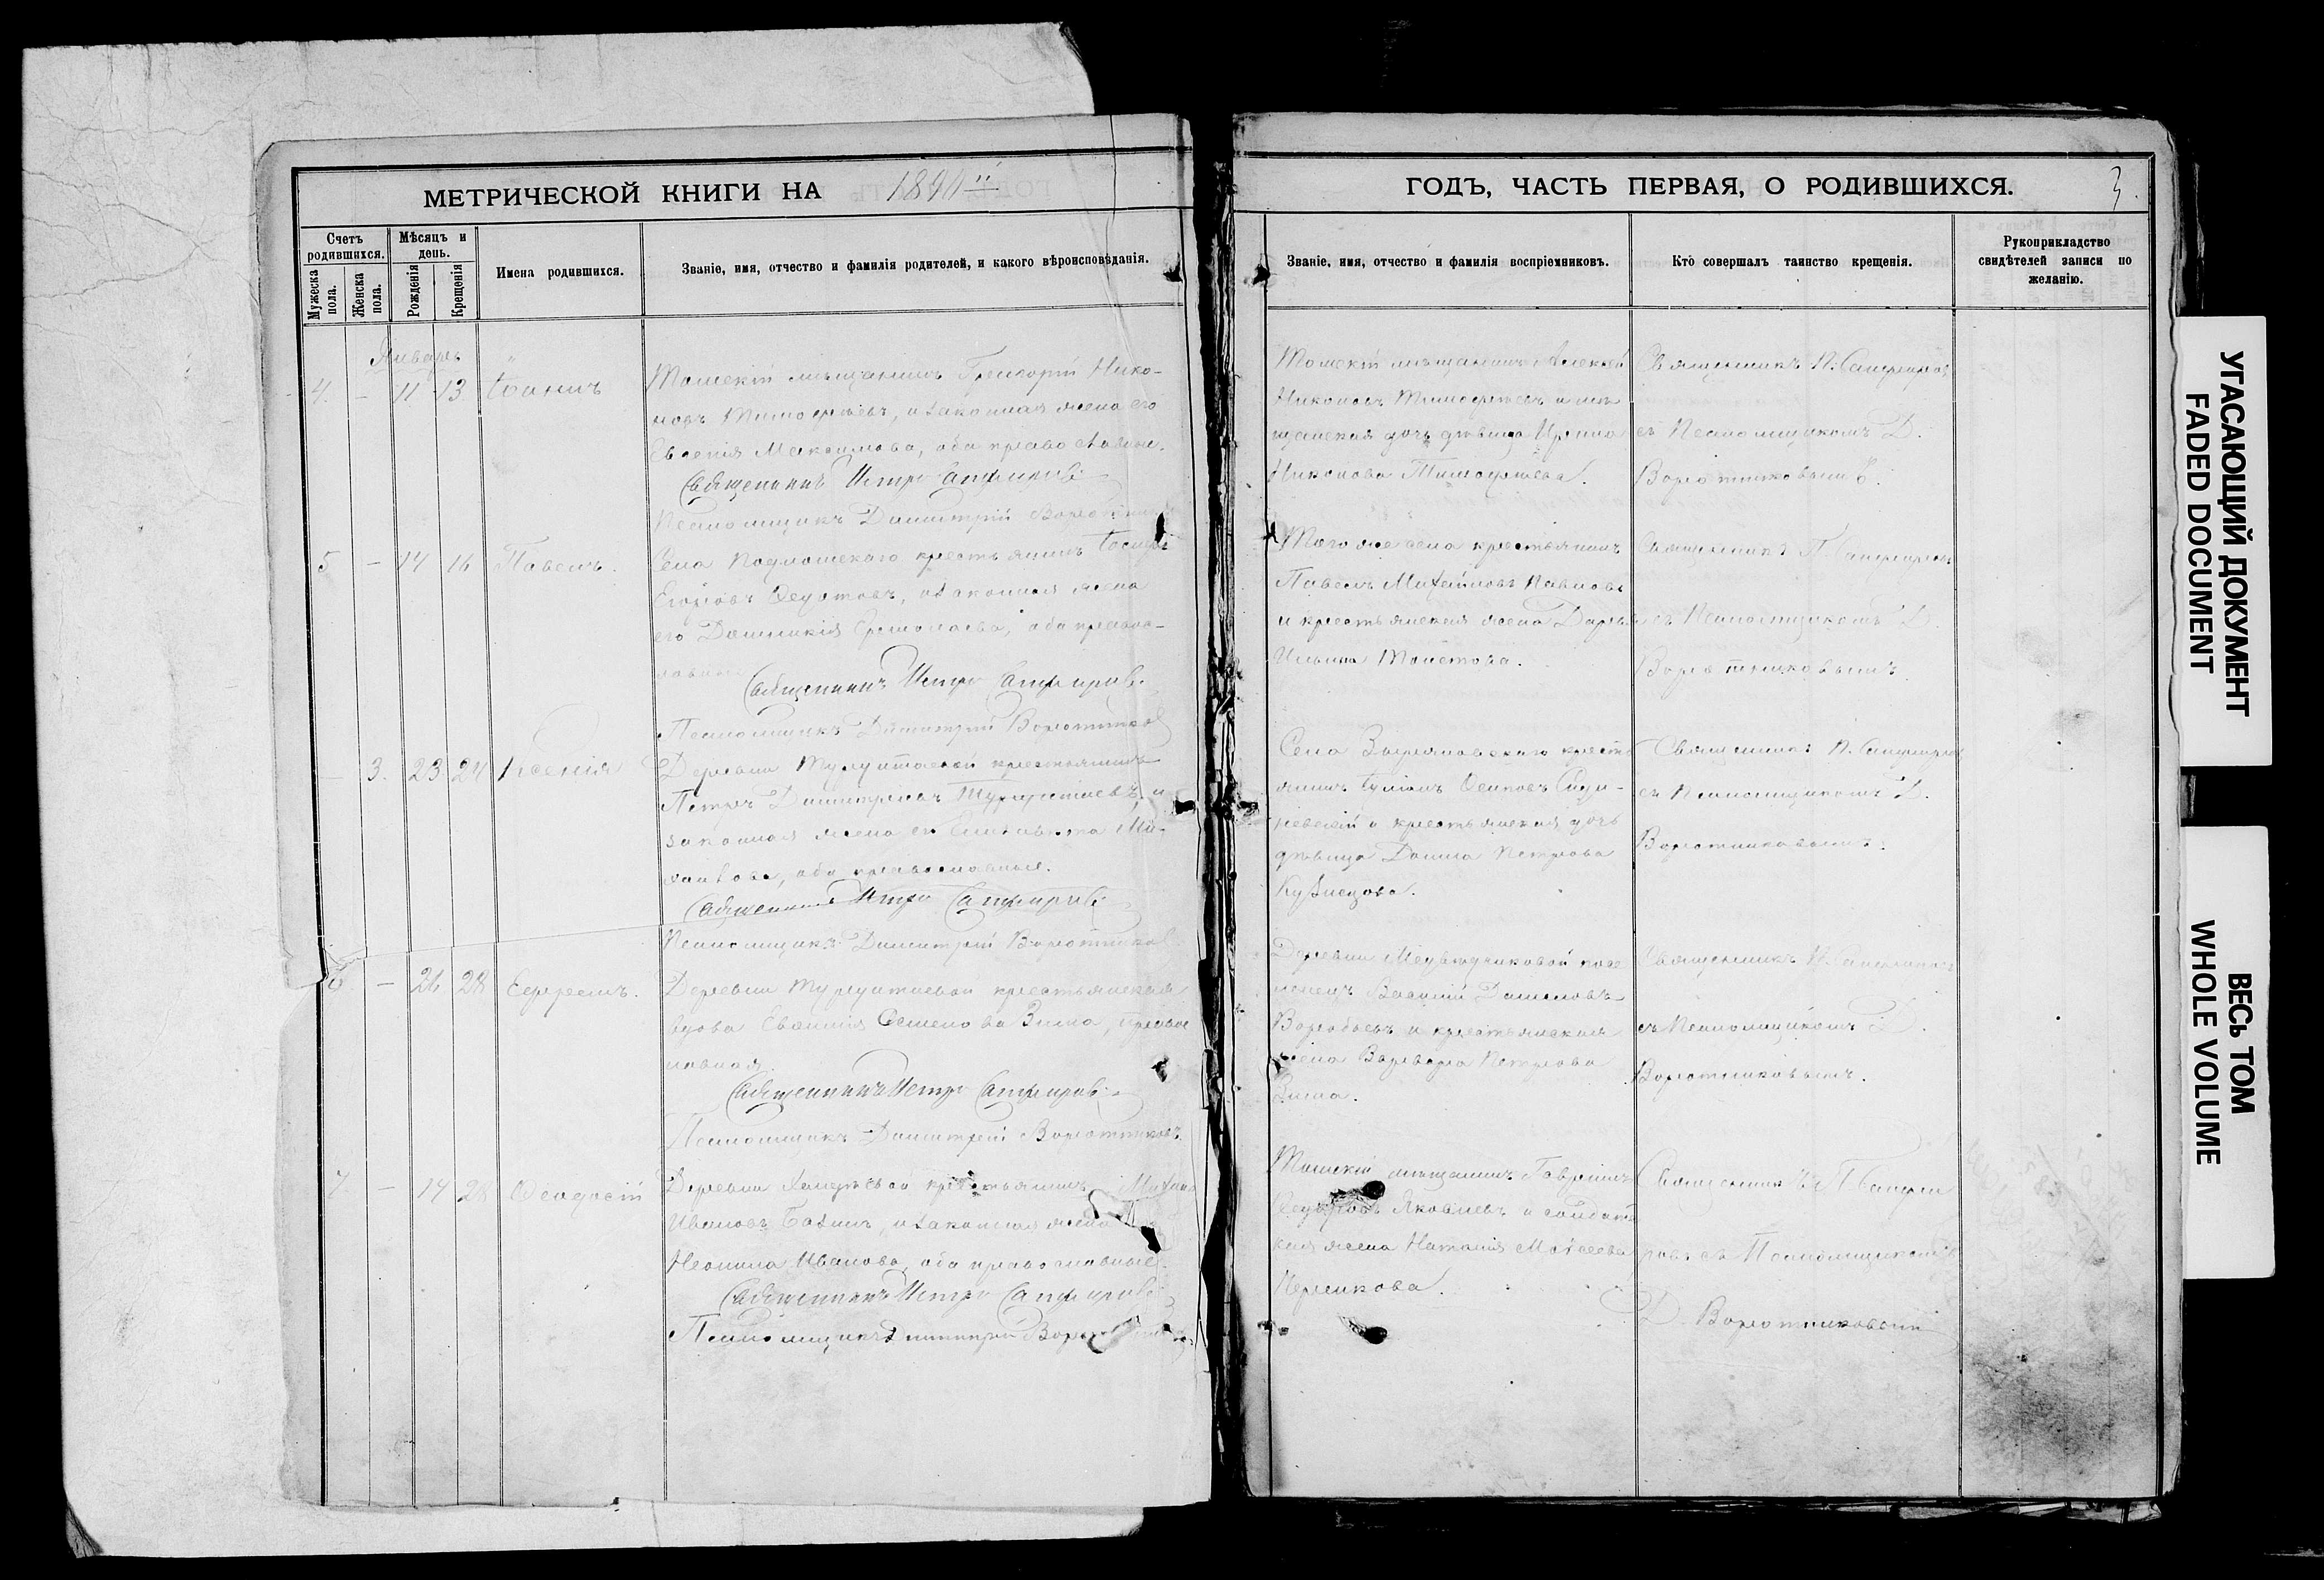 МЕТРИЧЕСКОЙ КНИГИ НА 189
Счетъ родившихся.
Мужеска пола.
Женска пола.
Мѣсяцъ и день.
Рожденія
Крещенія
Имена родившихся.
Званіе, имя, отчество и фамилія родителей, и какого вѣроисповѣданія.
Январь
4. - 11 13 Іоаннъ
Томскій мѣщанинъ Григорій Нико-
новъ Тимофѣевъ, и законная жена его
Евгенія Максимова, оба православн.
Священникъ Петръ Сапфировъ
Псаломщикъ Димитрій Воротников
5 - 14 16 Павелъ.
Села крестьянинъ
Егоровъ Федотовъ, и законная жена
его Домникія Ермолаева, оба правос-
лавные
Священникъ Петръ Сапфировъ
Псаломщикъ Димитрій Воротников
- 3. 23 24 Ксенія
Деревни Турунтаевой крестьянинъ
Петръ Димитріевъ Турунтаевъ и
законная жена его Елизавета Ми-
хайлова, оба православные.
Священникъ Петръ Сапфировъ
Псаломщикъ Димитрій Воротников
6. - 26 28 Ефремъ.
Деревни Турунтаевой крестьянская
вдова Евдокія Семенова Зима, правос
лавная.
Священникъ Петръ Сапфировъ
Псаломщикъ Димитрій Воротниковъ
7 - 14 28 Феодосій
Деревни крестьянинъ
Ивановъ и законная жена
Неонила Иванова, оба православные.
Священникъ Петръ Сапфировъ
Псаломщикъ Димитрій
ГОДЪ, ЧАСТЬ ПЕРВАЯ, О РОДИВШИХСЯ.
3.
Званіе, имя, отчество и фамилія воспріемниковъ.
Кто совершалъ таинство крещенія.
Рукоприкладство свидѣтелей записи по желанію.
Томскій мѣщанинъ Алексѣй
Никоновъ Тимофѣевъ и мѣ
щанская дочь дѣвица Ирина
Никонова Тимофѣева.
Священникъ П. Сапфировъ
съ Псаломщикомъ Д.
Воротниковымъ.
Того же села крестьянинъ
Павелъ Михайловъ Павловъ
и крестьянская жена Дарья
Ильина
Священникъ П. Сапфировъ
съ Псаломщикомъ Д.
Воротниковымъ.
Села крестъ
янинъ Осиповъ
и крестьянская дочь
дѣвица Домна Петрова
Кузнецова.
Священникъ П. Сапфировъ
съ Псаломщикомъ Д.
Воротниковымъ.
Деревни Медвѣдчиковой посе
ленецъ Василій Даниловъ
Воробьевъ и крестьянская
жена Варвара Петрова
Зима.
Священникъ П. Сапфировъ
съ Псаломщикомъ
Воротниковымъ.
Томскій мѣщанинъ Гавріилъ
Федоровъ Яковлевъ и солдатс
кая жена Наталія Моисеева
Священникъ П. Сапфи
ровъ съ Псаломщикомъ
Д. Воротниковымъ
УГАСАЮЩИЙ ДОКУМЕНТ
FADED DOCUMENT
ВЕСЬ ТОМ
WHOLE VOLUME